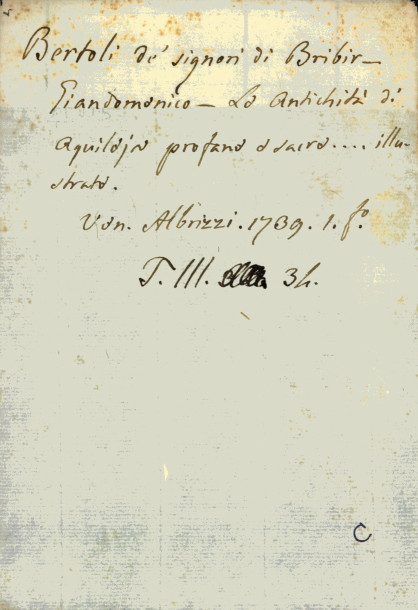 Bertoli de' signori di Bribir –
Giandomenico – Le Antichità di
Aquileja profane e sacre .... illu-
strate.
Ven. Albrizzi. 1739. 1. fo.
T. III. 34.
C